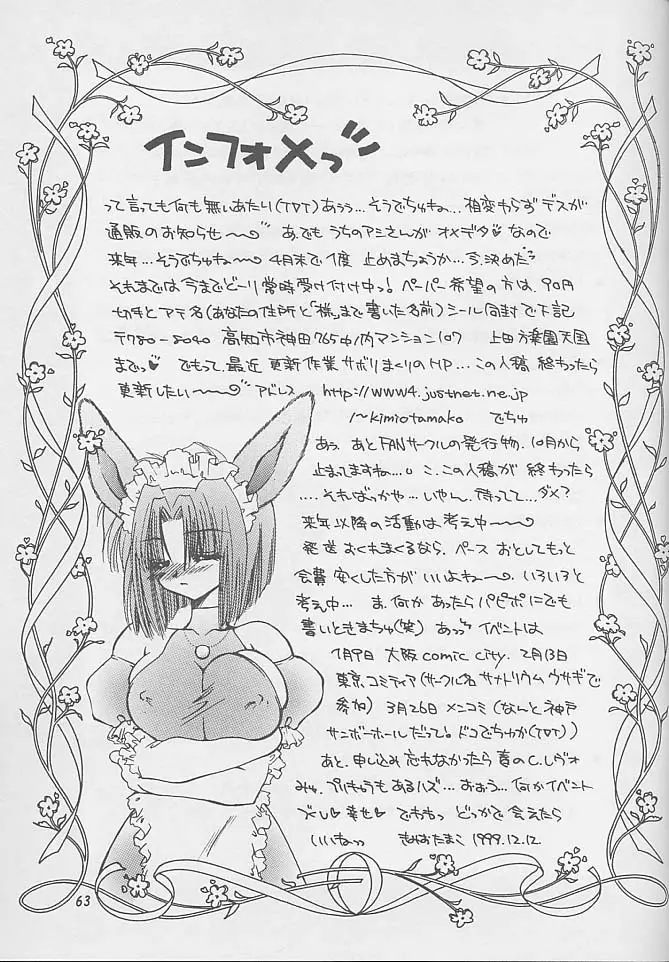 インフォメっ
って言っても何も無いあたり(TДT)あうぅ…そうでちゅね…相変わらずデスが
通販のお知らせ〜 あ、でも うちのアミさんが オメデタ♡ なので
来年…そうでちゅね〜 4月末で1度 止めまちょうか…今、決めた?
それまでは今までどーり常時受け付け中っ! ペーパー希望の方は、90円
切手とアテ名(あなたの住所と「様」まで書いた名前)シール同封で下記
〒780-8040 高知市神田765 内マンション107 上田方楽園天国
までっ♥ でもって、最近 更新作業 サボりまくりのHP…この人稿 終わったら
更新したい〜 アドレス http://www4.justnet.ne.jp
/~kimiotamako でちゅ
あぅ、あとFANサークルの発行物、10月から
止まってますね… こ、この人稿が 終わったら
‥‥そればっかや…いやん、待ってて…ダメ?
来年以降の活動は考え中〜
発送おくれまくるなら、ペース おとしてもっと
会費 安くした方が いいよね〜。いろいろと
考え中… ま、何か あったら パピポにでも
書いときまちゅ(笑) あっ イベントは
1月9日 大阪 comic city. 2月13日
東京コミティア(サークル名 サナトリウム ウサギで
参加) 3月26日 メニコミ(なんと神戸
サンボーホールだって! ドコでちゅか(TДT))
あと、申し込み 忘れなかったら 春のC.レヴォ
みゅ、プリきゅうもあるハズ… おおう…何かイベント
ズし♥ 幸せ♥ でももっ どっかで 会えたら
いいねっ きみおたまこ 1999.12.12.
63